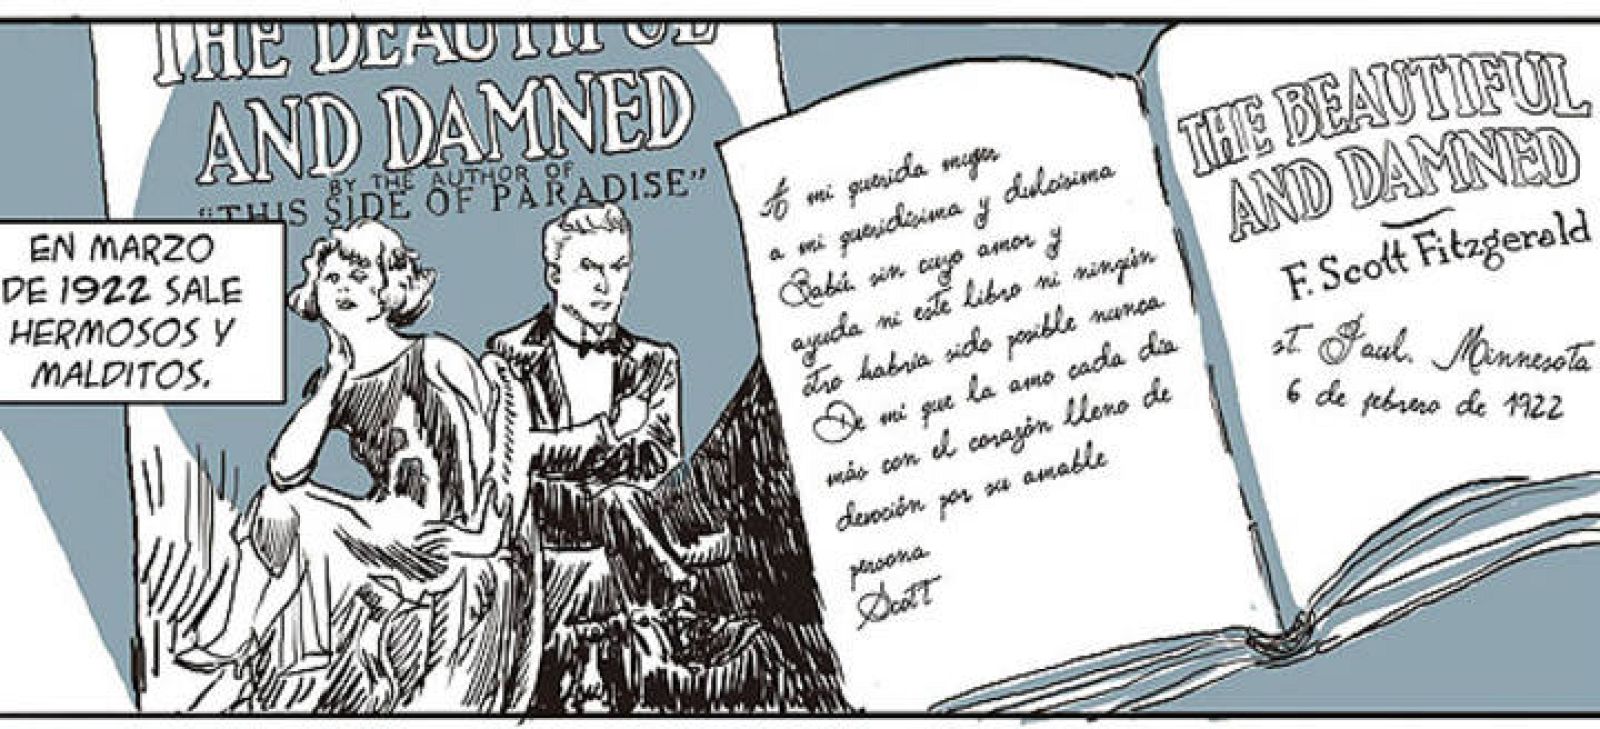 THE BEAUTIFUL
AND DAMNED
BY THE AUTHOR OF
"THIS SIDE OF PARADISE"
EN MARZO
DE 1922 SALE
HERMOSOS Y
MALDITOS.
A mi querida mujer
a mi queridísima y dulcísima
Babú sin cuyo amor y
ayuda ni este libro ni ningún
otro habría sido posible nunca
De mi que la amo cada día
más con el corazón lleno de
devoción por su amable
persona
Scott
THE BEAUTIFUL
AND DAMNED
F. Scott Fitzgerald
St. Paul. Minnesota
6 de febrero de 1922